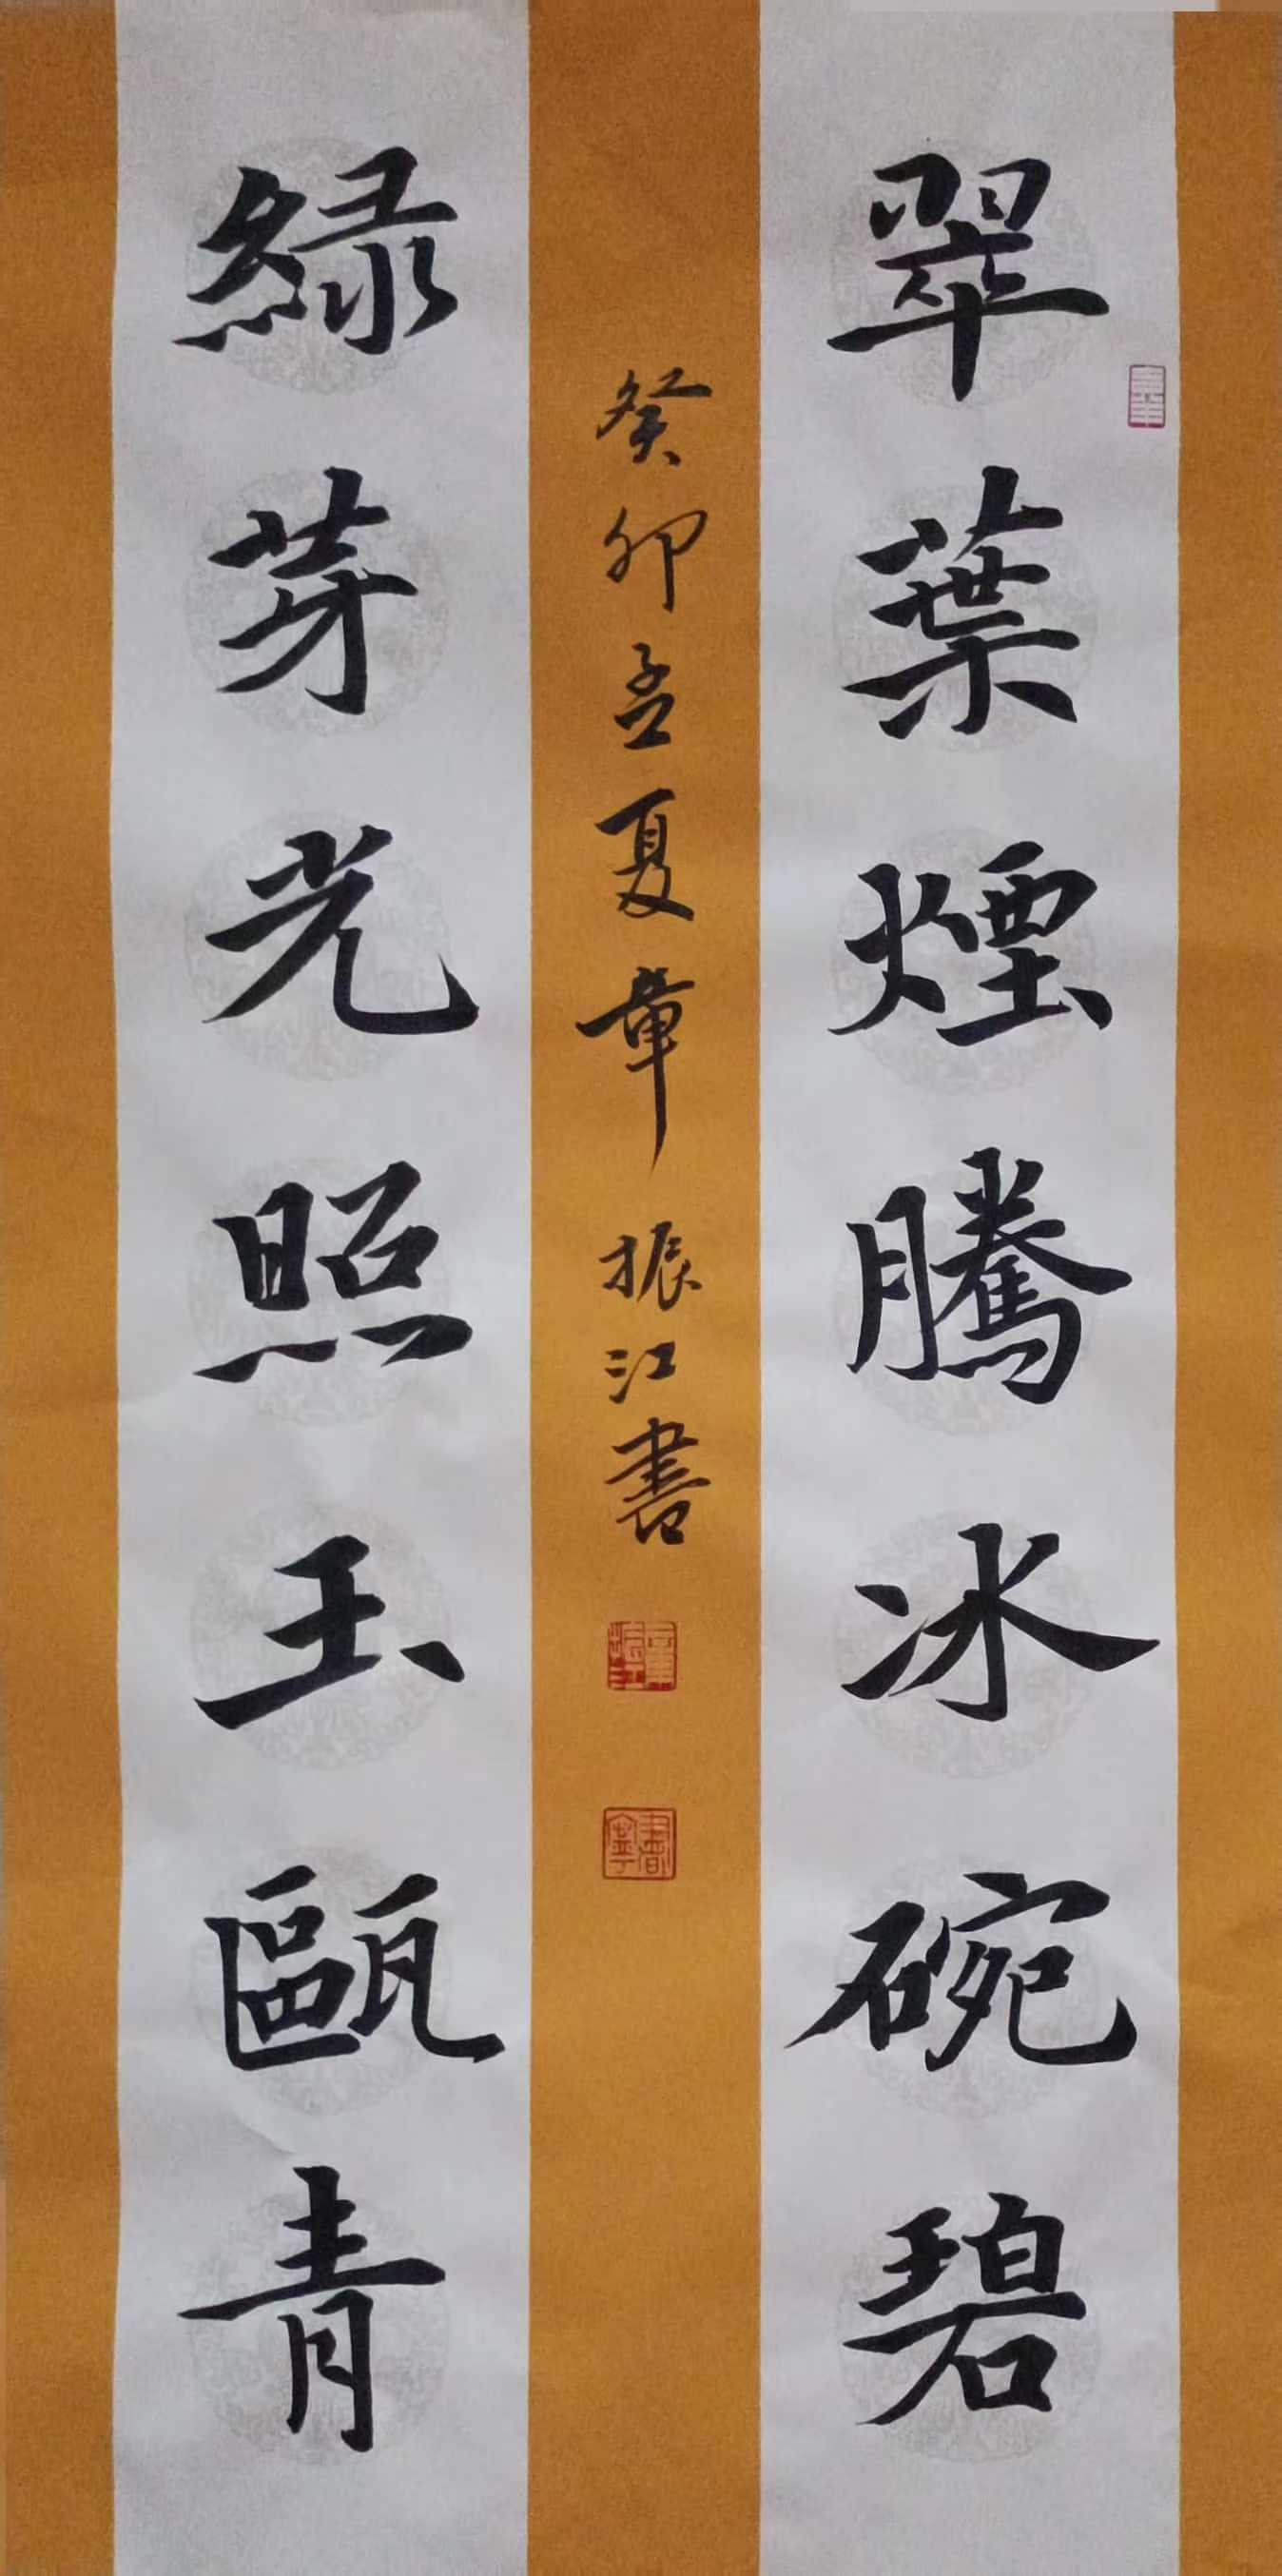 翠葉煙騰冰碗碧
癸卯孟夏章振江書
綠芽光照玉甌青